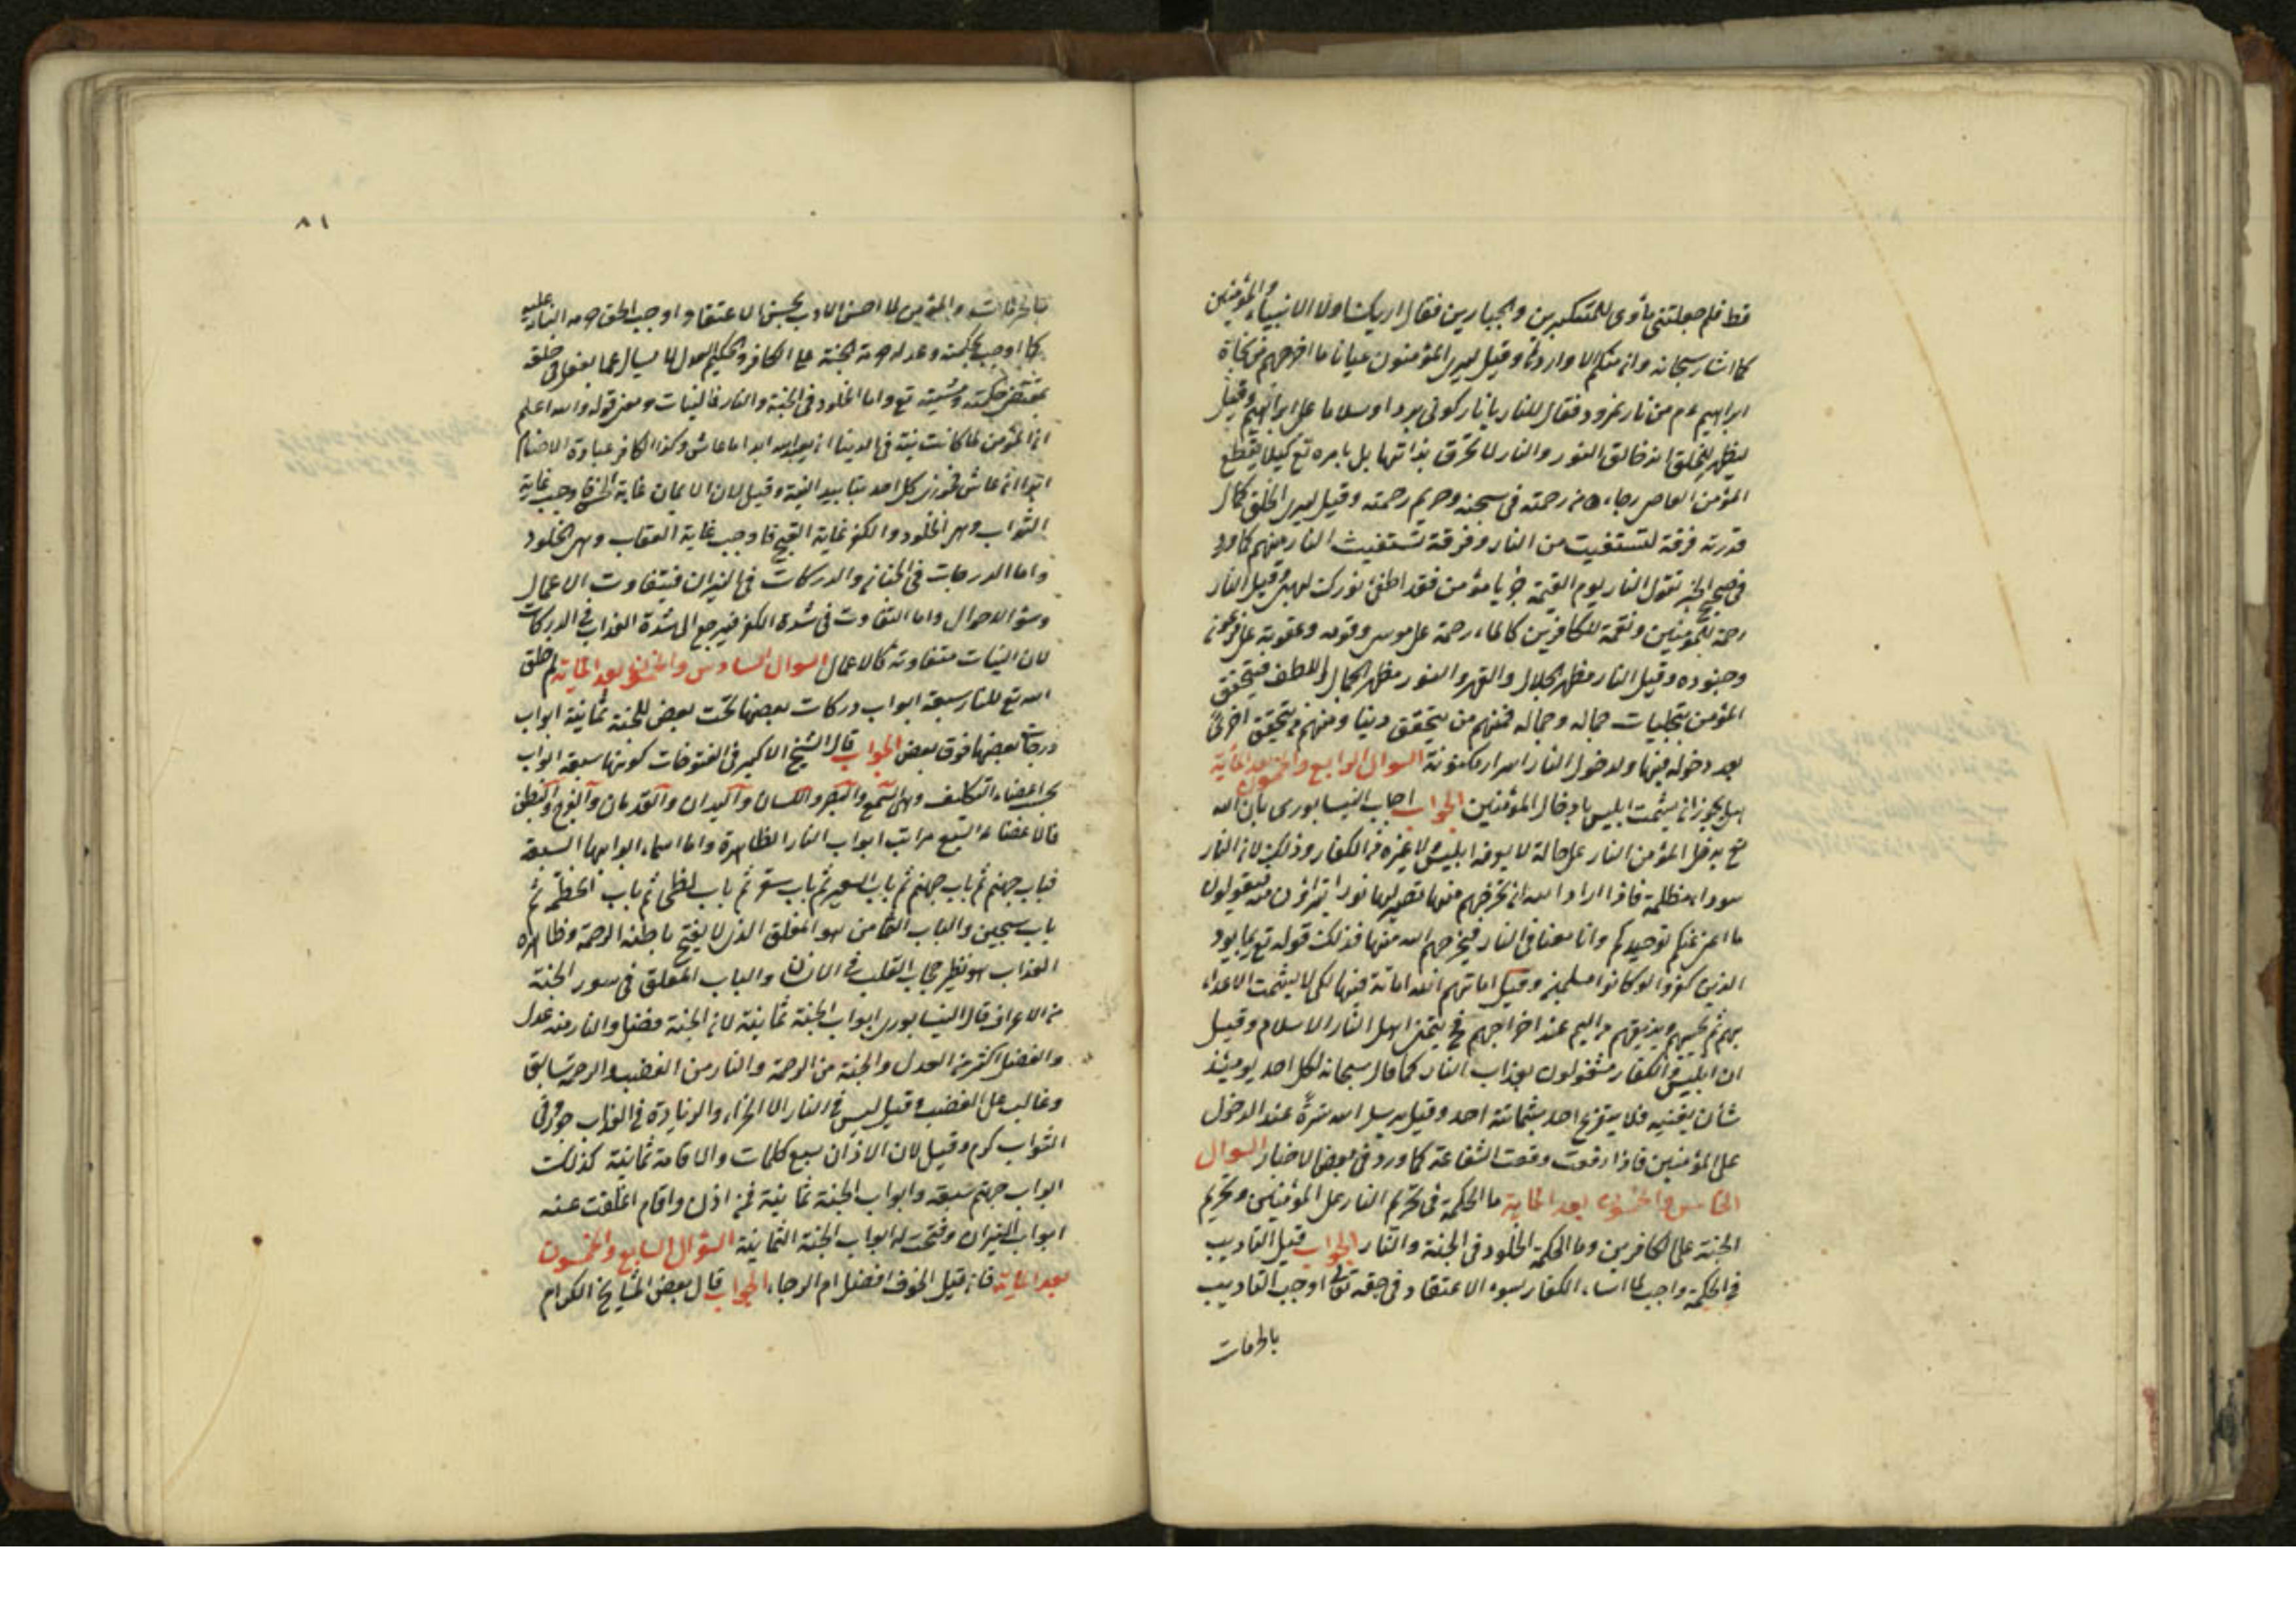 قط فلم جعلتنى مأوى للمتكبرين والجبارين فقال اريك اولا الانبياء والمؤمنين
كما اشار سبحانه وان منكم الا واردها وقيل ليرى المؤمنون عيانا ما اخرجهم من نجاة
ابراهيم عم من نار نمرود فقال للنار يا نار كونى بردا وسلاما على ابراهيم وقيل
ليظهر للخلق انه خالق النور والنار لا تحرق بذاتها بل بامره تع كيلا يقطع
المؤمن العاصى رجاءه من رحمته فى سجنه وحريم رحمته وقيل ليرى الخلق كمال
قدرته فرقة تستغيث من النار وفرقة تستغيث النار منهم كما ورد
فى صحيح الخبر تقول النار يوم القيمة جز يا مؤمن فقد اطفئ نورك لهبى وقيل النار
رحمة للمؤمنين ونقمة للكافرين كالماء رحمة على موسى وقومه وعقوبة على فرعون
وجنوده وقيل النار مظهر الجلال والقهر والنور مظهر الجمال واللطف فيتحقق
المؤمن بتجليات جماله وجماله فمنهم من يتحقق دينا ومنهم من يتحقق اخرى
بعد دخوله فيها ولدخول النار اسرار مكنونة السوال الرابع والخمسون بعد المائة
هل يجوز ان يشمت ابليس بادخال المؤمنين الجواب اجاب النيسابورى بان الله
تع يدخل المؤمن النار على حالة لا يعرفه ابليس لا غيره من الكفار وذلك لان النار
سوداء مظلمة فاذا اراد الله ان يخرجهم منها تصير لها نورا فيقولون
ما اغنى عنكم توحيدكم وانتم معنا فى النار فيخرجهم الله منها فذلك قوله تع ربما يود
الذين كفروا لو كانوا مسلمين وقيل اماتهم الله اماتة فيها لكى لا يشمت الاعداء
بهم ثم يحييهم ويذيقهم اليم عند اخراجهم فح يتمنى اهل النار الاسلام وقيل
ان ابليس والكفار مشغولون بعذاب النار كما قال سبحانه لكل احد يومئذ
شأن يغنيه فلا يتفرغ احد بشماتة احد وقيل يرسل الله سترة عند الدخول
على المؤمنين فاذا رفعت وقعت الشفاعة كما ورد فى بعض الاخبار السوال
الخامس والخمسون بعد المائة ما الحكمة فى تحريم النار على المؤمنين وتحريم
الجنة على الكافرين وما الحكمة الخلود فى الجنة والنار الجواب قيل التاديب
فى الحكمة واجب لما اساء الكفار بسوء الاعتقاد فى حقه تعالى اوجب التاديب
بالحرمات
٨١
بالحرمات والمؤمن لما احسن الادب بحسن الاعتقاد اوجب الحق حرمة النار عليه
كما اوجب بحكمته وعدله حرمة الجنة على الكافر والحكيم العدل لا يسأل عما يفعل فى خلقه
بمقتضى حكمته ومشيته تع واما الخلود فى الجنة والنار فالنيات ومعنى قوله والله اعلم
ان المؤمن لما كانت نيته فى الدنيا ان يعبد الله ابدا ما عاش وكذا الكافر عبادة الاصنام
ابدا ان عاش فجوزى كل احد بتابيد النية وقيل لان الايمان غاية الحسن فاوجب غاية
الثواب وهى الخلود والكفر غاية القبح فاوجب غاية العقاب وهى الخلود
واما الدرجات فى الجنان والدركات فى النيران فبتفاوت الاعمال
وسوء الاحوال واما التفاوت فى شدة الكفر فيرجع الى شدة العذاب فى الدركات
لان النيات متفاوتة كالاعمال السوال السادس والخمسون بعد المائة لم خلق
الله تع للنار سبعة ابواب دركات بعضها تحت بعض للجنة ثمانية ابواب
درجات بعضها فوق بعض الجواب قال الشيخ الاكبر فى الفتوحات كونها سبعة ابواب
بحسب اعضاء التكليف وهى السمع والبصر واللسان واليدان والقدمان والفرج والبطن
فالاعضاء السبع مراتب ابواب النار الظاهرة واما اسماء ابوابها السبعة
فباب جهنم ثم باب جهنم ثم باب السعير ثم باب سقر ثم باب لظى ثم باب الحطمة ثم
باب سجين والباب الثامن هو المغلق الذى لا يفتح باطنه الرحمة وظاهره
العذاب هو نظير حجاب القلب فى الانسان والباب المغلق فى سور الجنة
من الاعراف قال النيسابورى ابواب الجنة ثمانية لان الجنة فضل والنار منه عدل
والفضل اكثر من العدل والجنة من الرحمة والنار من الغضب والرحمة سابق
وغالب على الغضب وقيل ليس فى النار الا الجزاء والزيادة فى العذاب جور وفى
الثواب كرم وقيل لان الاذان سبع كلمات والاقامة ثمانية كذلك
ابواب جهنم سبعة وابواب الجنة ثمانية فمن اذن واقام اغلقت عنه
ابواب النيران وفتحت له ابواب الجنة الثمانية السؤال السابع والخمسون
بعد المائة فان قيل الخوف افضل ام الرجاء الجواب قال بعض المشايخ الكرام